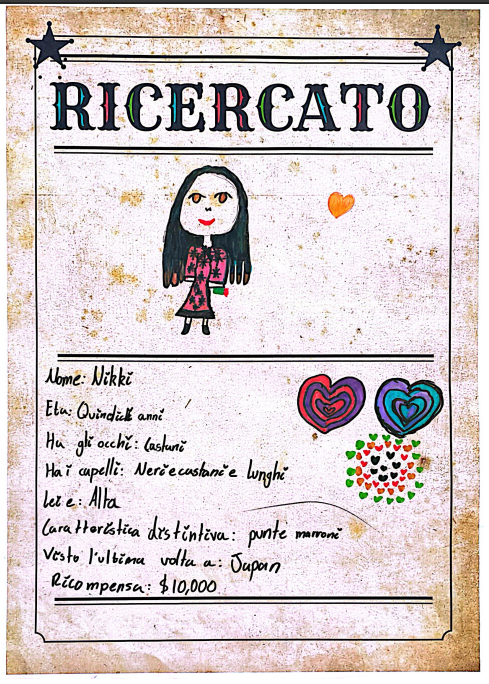 RICERCATO
Nome: Nikki
Eta: Quindici anni
Ha gli occhi: Castani
Ha i capelli: Neri e castani e lunghi
Lei e: Alta
Caratteristica distintiva: punte marroni
Visto l'ultima volta a: Japan
Ricompensa: $10,000